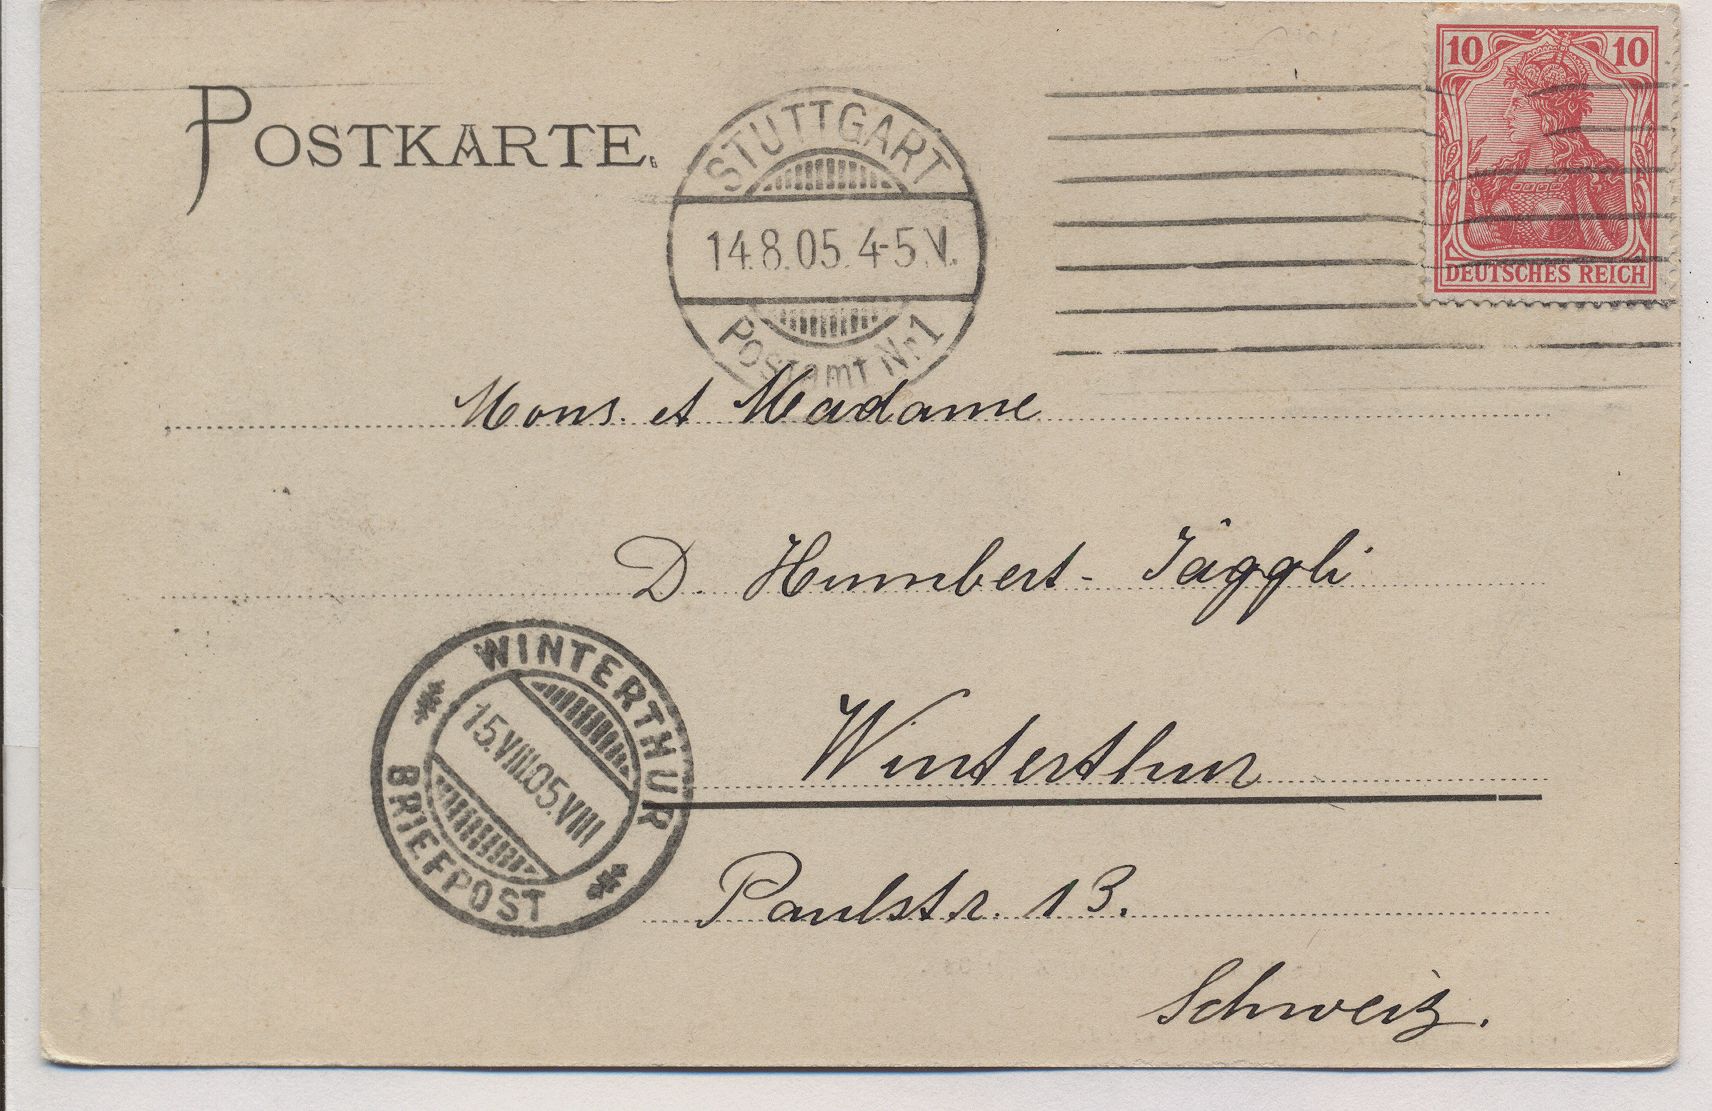 POSTKARTE.
STUTTGART
14.8.05. 4-5 V.
POSTAMT Nr 1
10 10
DEUTSCHES REICH
Mons. et Madame
D. Humbert - Jäggli
WINTERTHUR
15.VIII.05.VIII
BRIEFPOST
Winterthur
Paulstr. 13.
Schweiz.